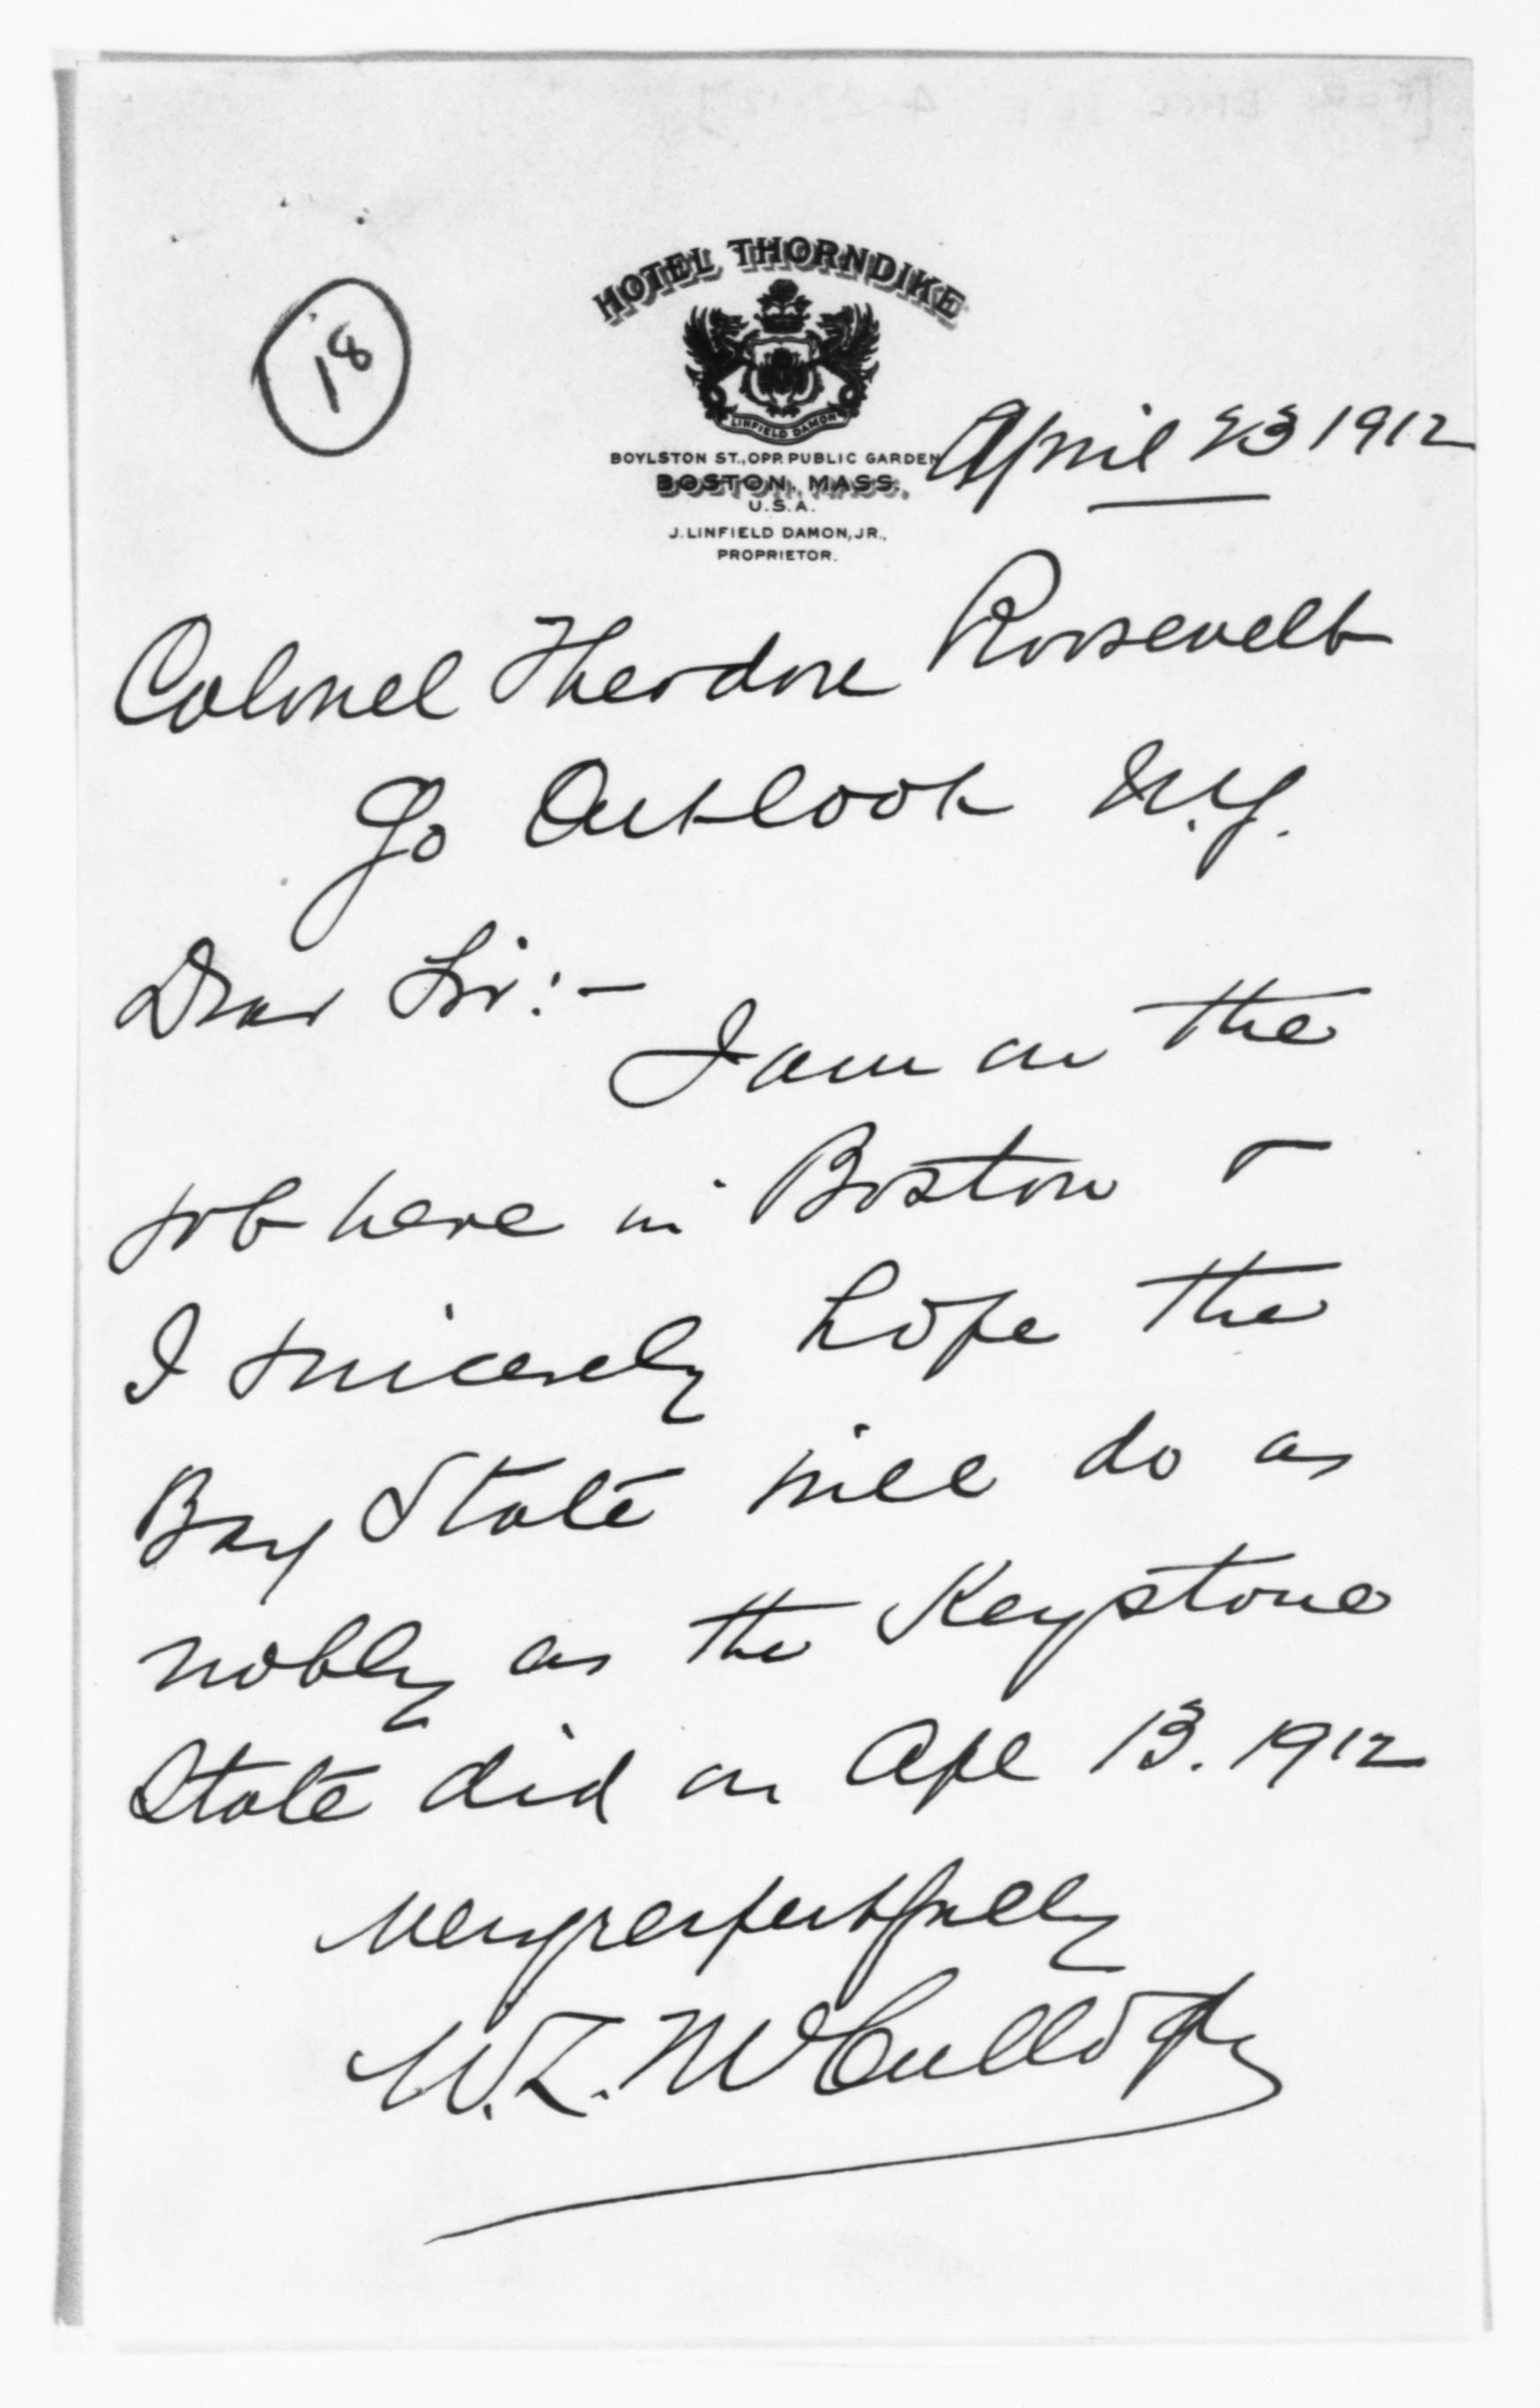 18
HOTEL THORNDIKE
LINFIELD DAMON
BOYLSTON ST., OPP. PUBLIC GARDEN
BOSTON, MASS.
U.S.A.
J. LINFIELD DAMON, JR.,
PROPRIETOR.
April 23 1912
Colonel Theodore Roosevelt
c/o Outlook N.Y.
Dear Sir:-
I am on the
job here in Boston &
I sincerely hope the
Bay State will do as
nobly as the Keystone
State did on Apl 13. 1912
Very respectfully
W. L. McCullogh